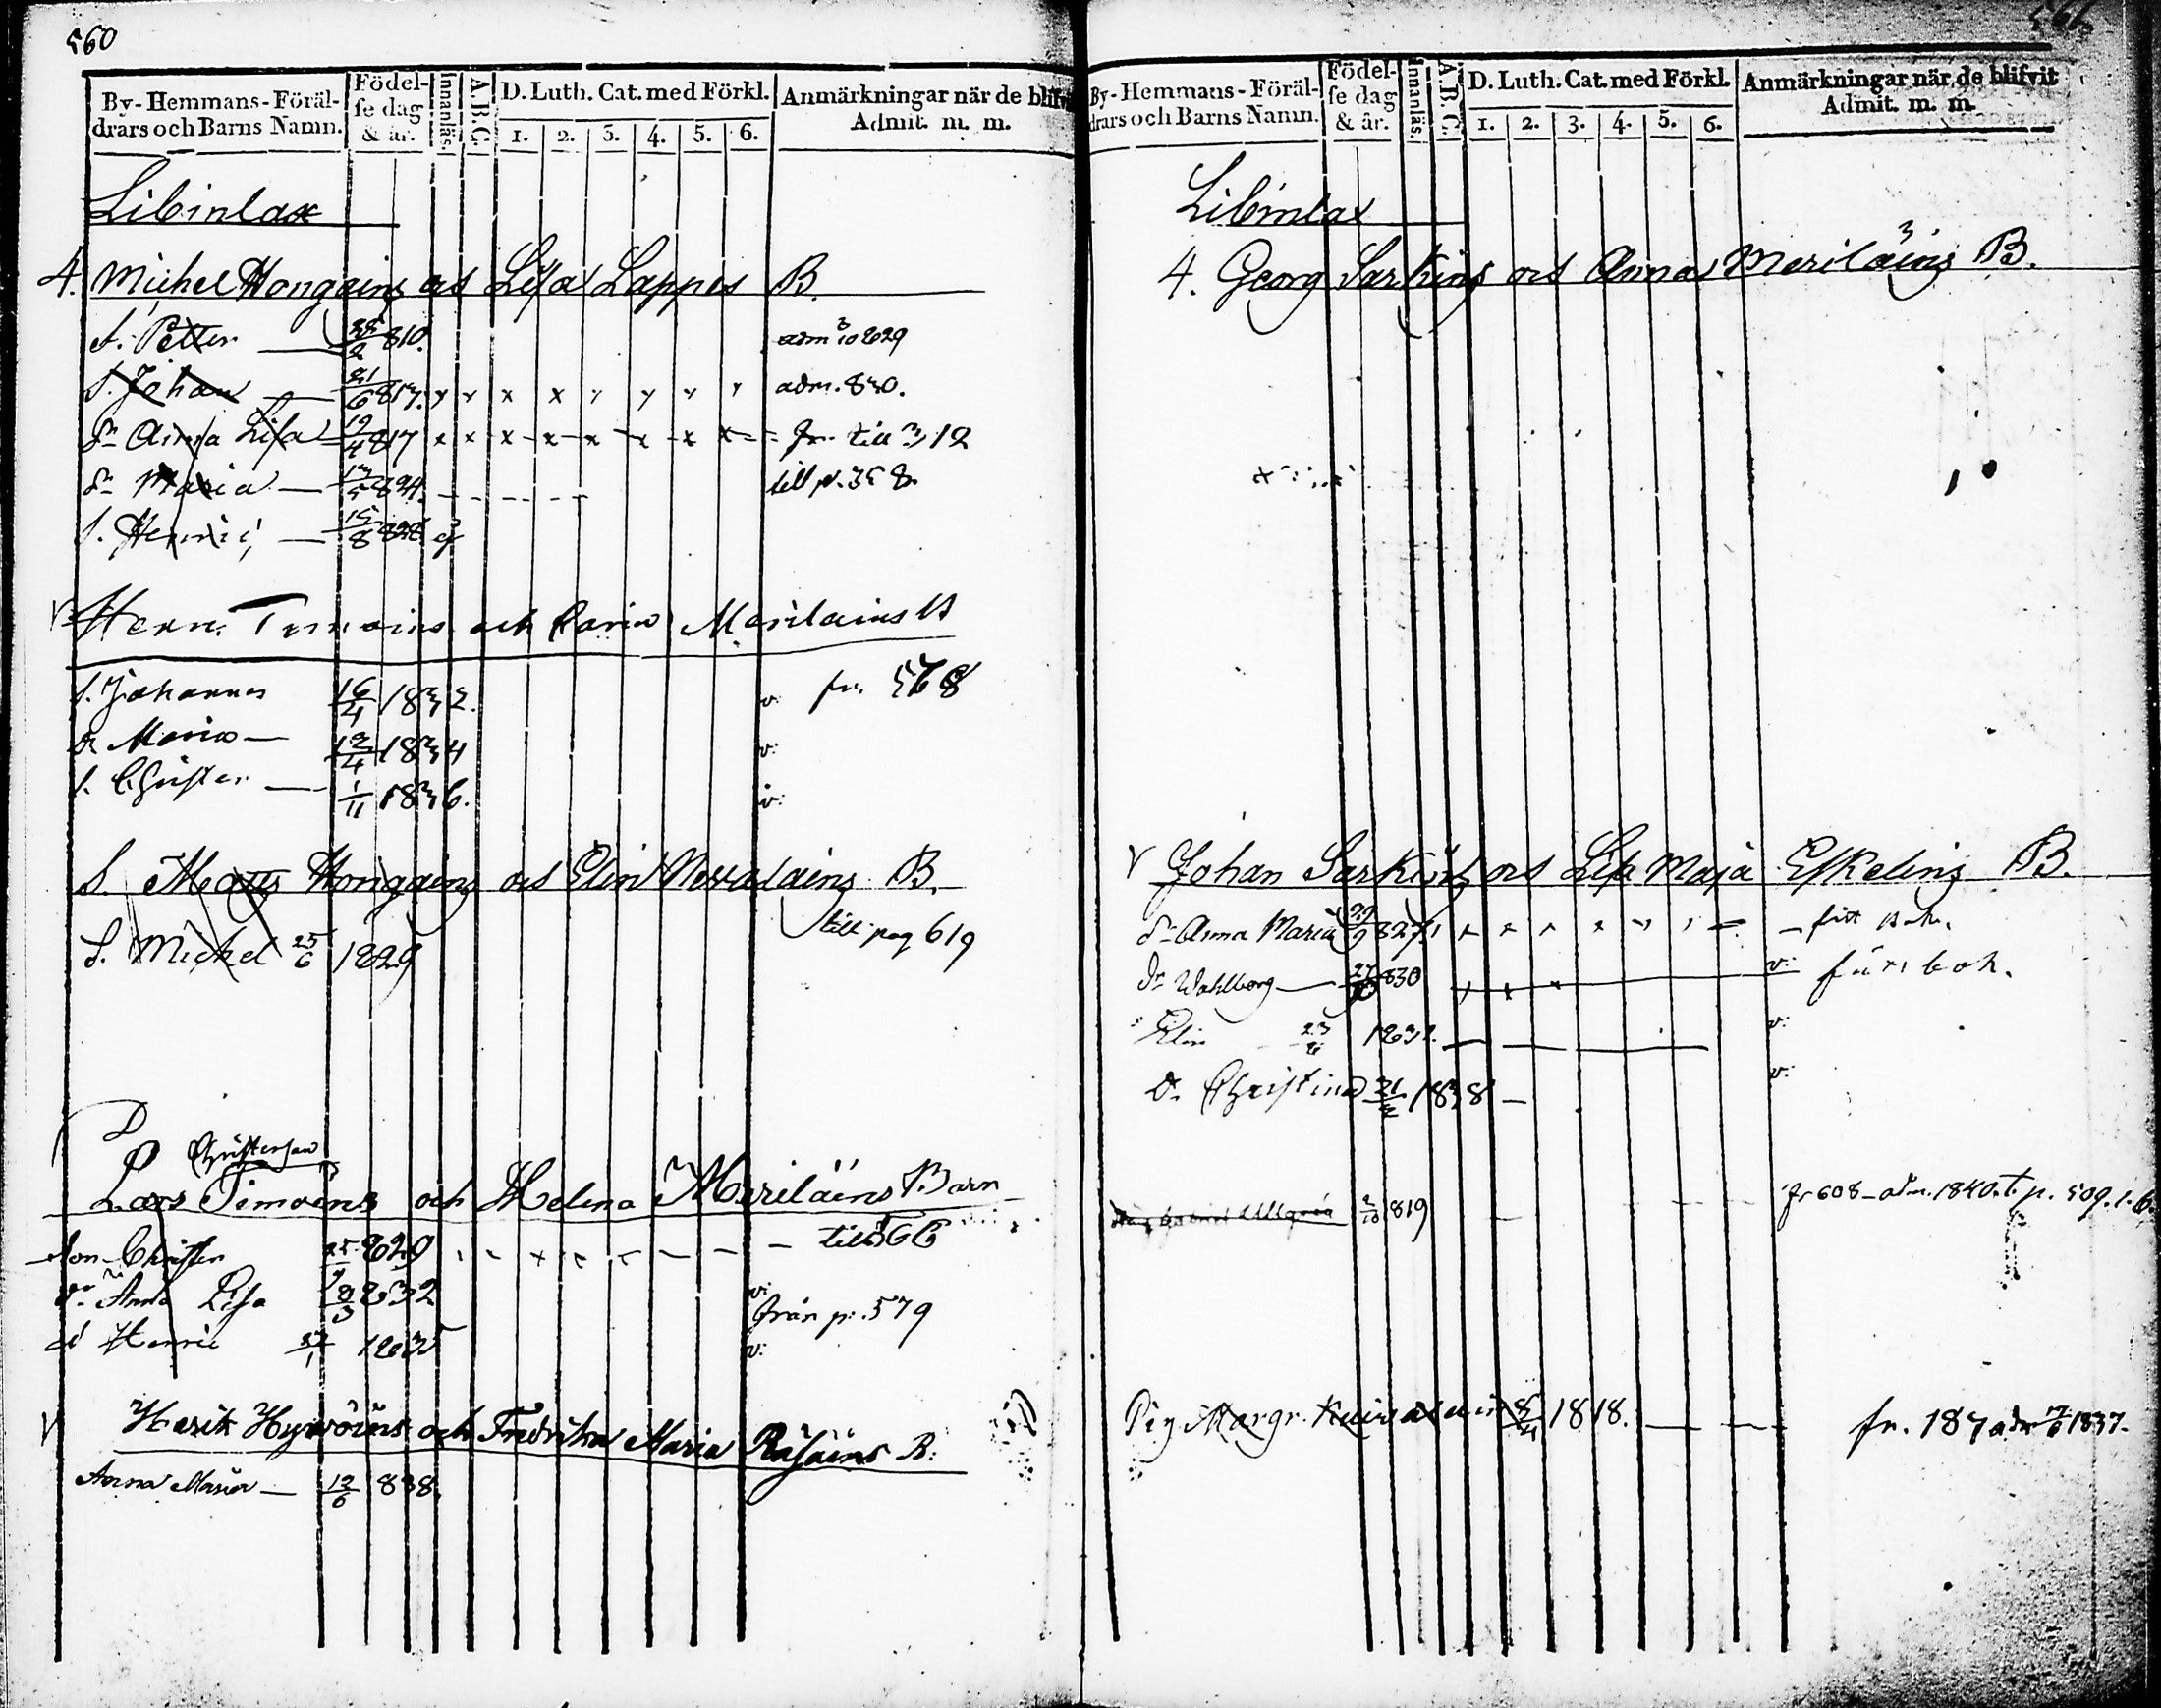 560
By-Hemmans-Föräl-
drars och Barns Namn.
Födel-
se dag
& år.
Innanläs.
A.B.C.
D. Luth. Cat. med Förkl.
1. 2. 3. 4. 5. 6.
Anmärkningar när de blifvit
Admit. m. m.
Libinlax
4. Michel Hongains och Lisa Lappes B.
S. Petter 25/2 810. adm 3/10 829
S. Johan 21/6 813. x x x x x x x x adm. 830.
Dr Anna Lisa 19/4 817 x x x x x x x x fr. till 312
Dr Maria 13/5 824. till p. 358.
S. Henric 15/8 828
Henr. Timoins och Carin Merilains B
S. Johannes 16/4 1832. v. fr. 568
D. Maria 12/4 1834 v:
S. Christer 1/11 1836. v:
S. Matts Hongains och Elin Nevalains B.
S. Michel 25/6 1829 till pag 619
Christersson
Lars Timoins och Helena Meriläins Barn
Son Christer 25 829 till 566
Dr Anna Lisa 8/3 832 v:
från p. 579
S Henric 27/1 1835 v:
Henrik Hyvöins och Fredrika Maria Räsäins B:
Anna Maria 12/6 838.
561
By-Hemmans-Föräl-
drars och Barns Namn.
Födel-
se dag
& år.
Innanläs.
A.B.C.
D. Luth. Cat. med Förkl.
1. 2. 3. 4. 5. 6.
Anmärkningar när de blifvit
Admit. m. m.
Libinlax
4. Georg Sarkins och Anna Meriläins B.
Johan Sarkins och Lisa Maja Eskelins B.
Dr Anna Maria 29/9 827.
Dr Wahlborg 27/10 830 v:
Elin 23 1832. v:
D. Christina 21/2 1838 v:
2/10 819 fr 608 adm. 1840. t. p. 509.
Pig Margr. 1818. fr. 187 adm 1837.